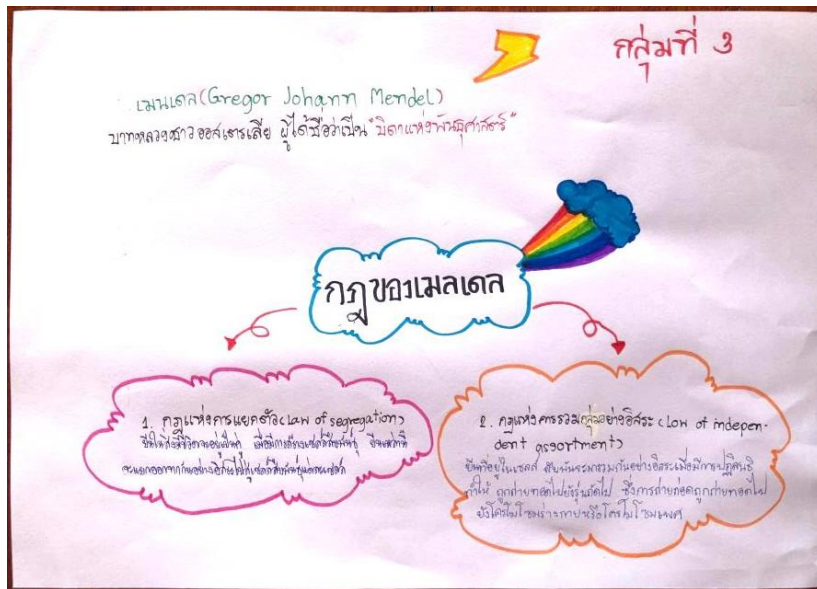 กลุ่มที่ 3
เมนเดล(Gregor Johann Mendel)
บาทหลวงชาวออสเตรเลีย ผู้ได้ชื่อว่าเป็น "บิดาแห่งพันธุศาสตร์"
กฎของเมลเดล
1. กฎแห่งการแยกตัว(Law of segregation)
ยีนในสิ่งมีชีวิตจะอยู่เป็นคู่ เมื่อมีการสร้างเซลล์สืบพันธุ์ ยีนเหล่านี้
จะแยกออกจากกันอย่างอิสระไปสู่เซลล์สืบพันธุ์แต่ละเซลล์
2. กฎแห่งการรวมกลุ่มอย่างอิสระ(Low of indepen-
dent assortment)
ยีนที่อยู่ในเซลล์ สืบพันธุ์จะรวมกันอย่างอิสระเมื่อมีการปฏิสนธิ
ทำให้ ถูกถ่ายทอดไปยังรุ่นถัดไป ซึ่งการถ่ายทอดถูกถ่ายทอดไป
ยังโครโมโซมร่างกายหรือโครโมโซมเพศ